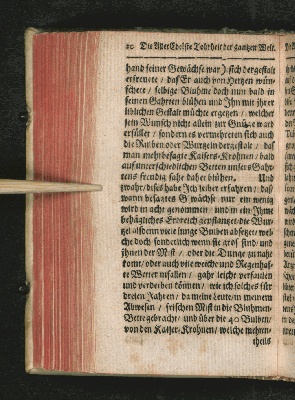 20 Die Aller Edelste Tohrheit der gantzen Welt.
hand seiner Gewächse war) sich dergestalt
erfreuete / daß Er auch von Hertzen wün-
schete / selbige Bluhme doch nun bald in
seinen Gahrten blühen und Ihn mit ihrer
lieblichen Gestalt müchte ergetzen / welcher
sein Wunsch nicht allein zur Gnüge ward
erfüllet / sondern es vermehreten sich auch
die Knollen oder Wurtzeln dergestalt / daß
man mehrbesagte Kaisers-Krohnen / bald
auf unterschiedlichen Betten unsers Gahr-
tens freudig sahe daher blühen.
zwahr / dises habe Ich selber erfahren / daß
wann besagtes Gewächse nur ein wenig
wird in acht genommen / und in ein Ihme
behägliches Erdreich gepflantzet die Wur-
tzel alsdenn viele junge Bulben absetzet / wel-
che doch sonderlich wenn sie groß sind / und
ihnen der Mist / oder die Dunge zu nahe
komt / oder auch viele weiche und Regenhaf-
te Wetter infallen / gahr leicht verfaulen
und verderben können / wie ich solches für
dreien Jahren / da meine Leute / in meinem
Abwesen / frischen Mist in die Bluhmen-
Bette gebracht / und über die 40 Bulben /
von den Kaiser-Krohnen / welche mehren-
theils